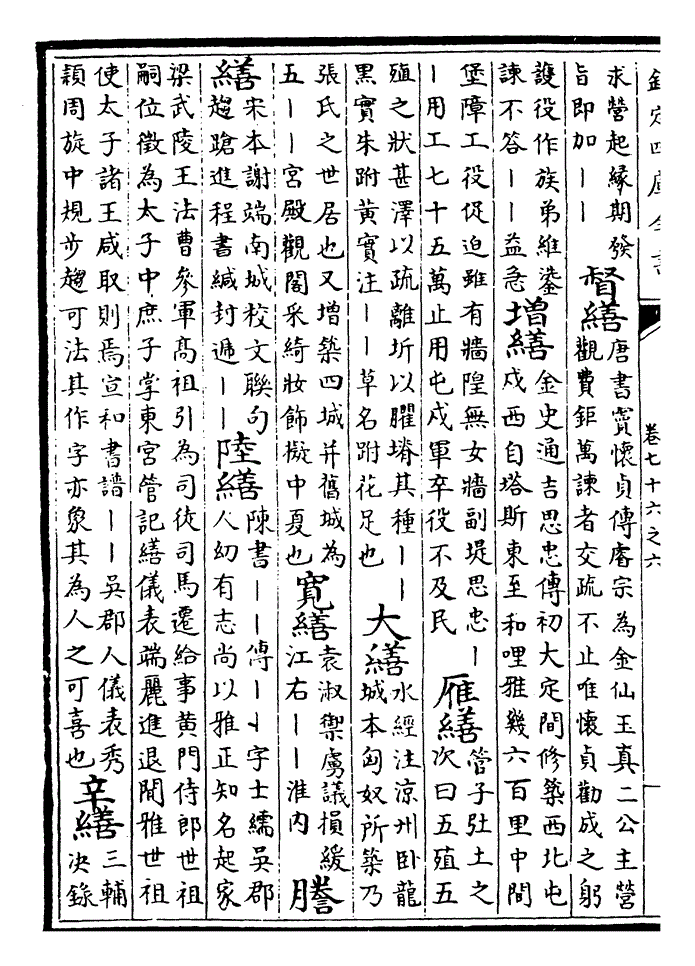 欽定四庫全書
卷七十六之六
求營起緣期發
旨即加——
督繕
唐書竇懷貞傳睿宗為金仙玉真二公主營
觀費鉅萬諫者交疏不止唯懷貞勸成之躬
護役作族弟維鍙
諫不答——益急
增繕
金史通吉思忠傳初大定間修築西北屯
戍西自塔斯東至和哩雅幾六百里中間
堡障工役促迫雖有牆隍無女牆副堤思忠—
—用工七十五萬止用屯戍軍卒役不及民
雁繕
管子土之
次曰五殖五
殖之狀甚澤以疏離坼以臞塉其種——
黑實朱跗黃實注——草名跗花足也
大繕
水經注涼州卧龍
城本匈奴所築乃
張氏之世居也又增築四城并舊城為
五——宮殿觀閣采綺妝飾擬中夏也
寛繕
袁淑禦虜議損緩
江右——淮内
謄
繕
宋本謝端南城校文聯句
趨蹌進程書緘封遞——
陸繕
陳書——傳——字士繻吳郡
人幼有志尚以雅正知名起家
梁武陵王法曹參軍高祖引為司徒司馬遷給事黃門侍郎世祖
嗣位徵為太子中庶子掌東宮管記繕儀表端麗進退閒雅世祖
使太子諸王咸取則焉宣和書譜——吳郡人儀表秀
穎周旋中規步趨可法其作字亦象其為人之可喜也
辛繕
三輔
決錄